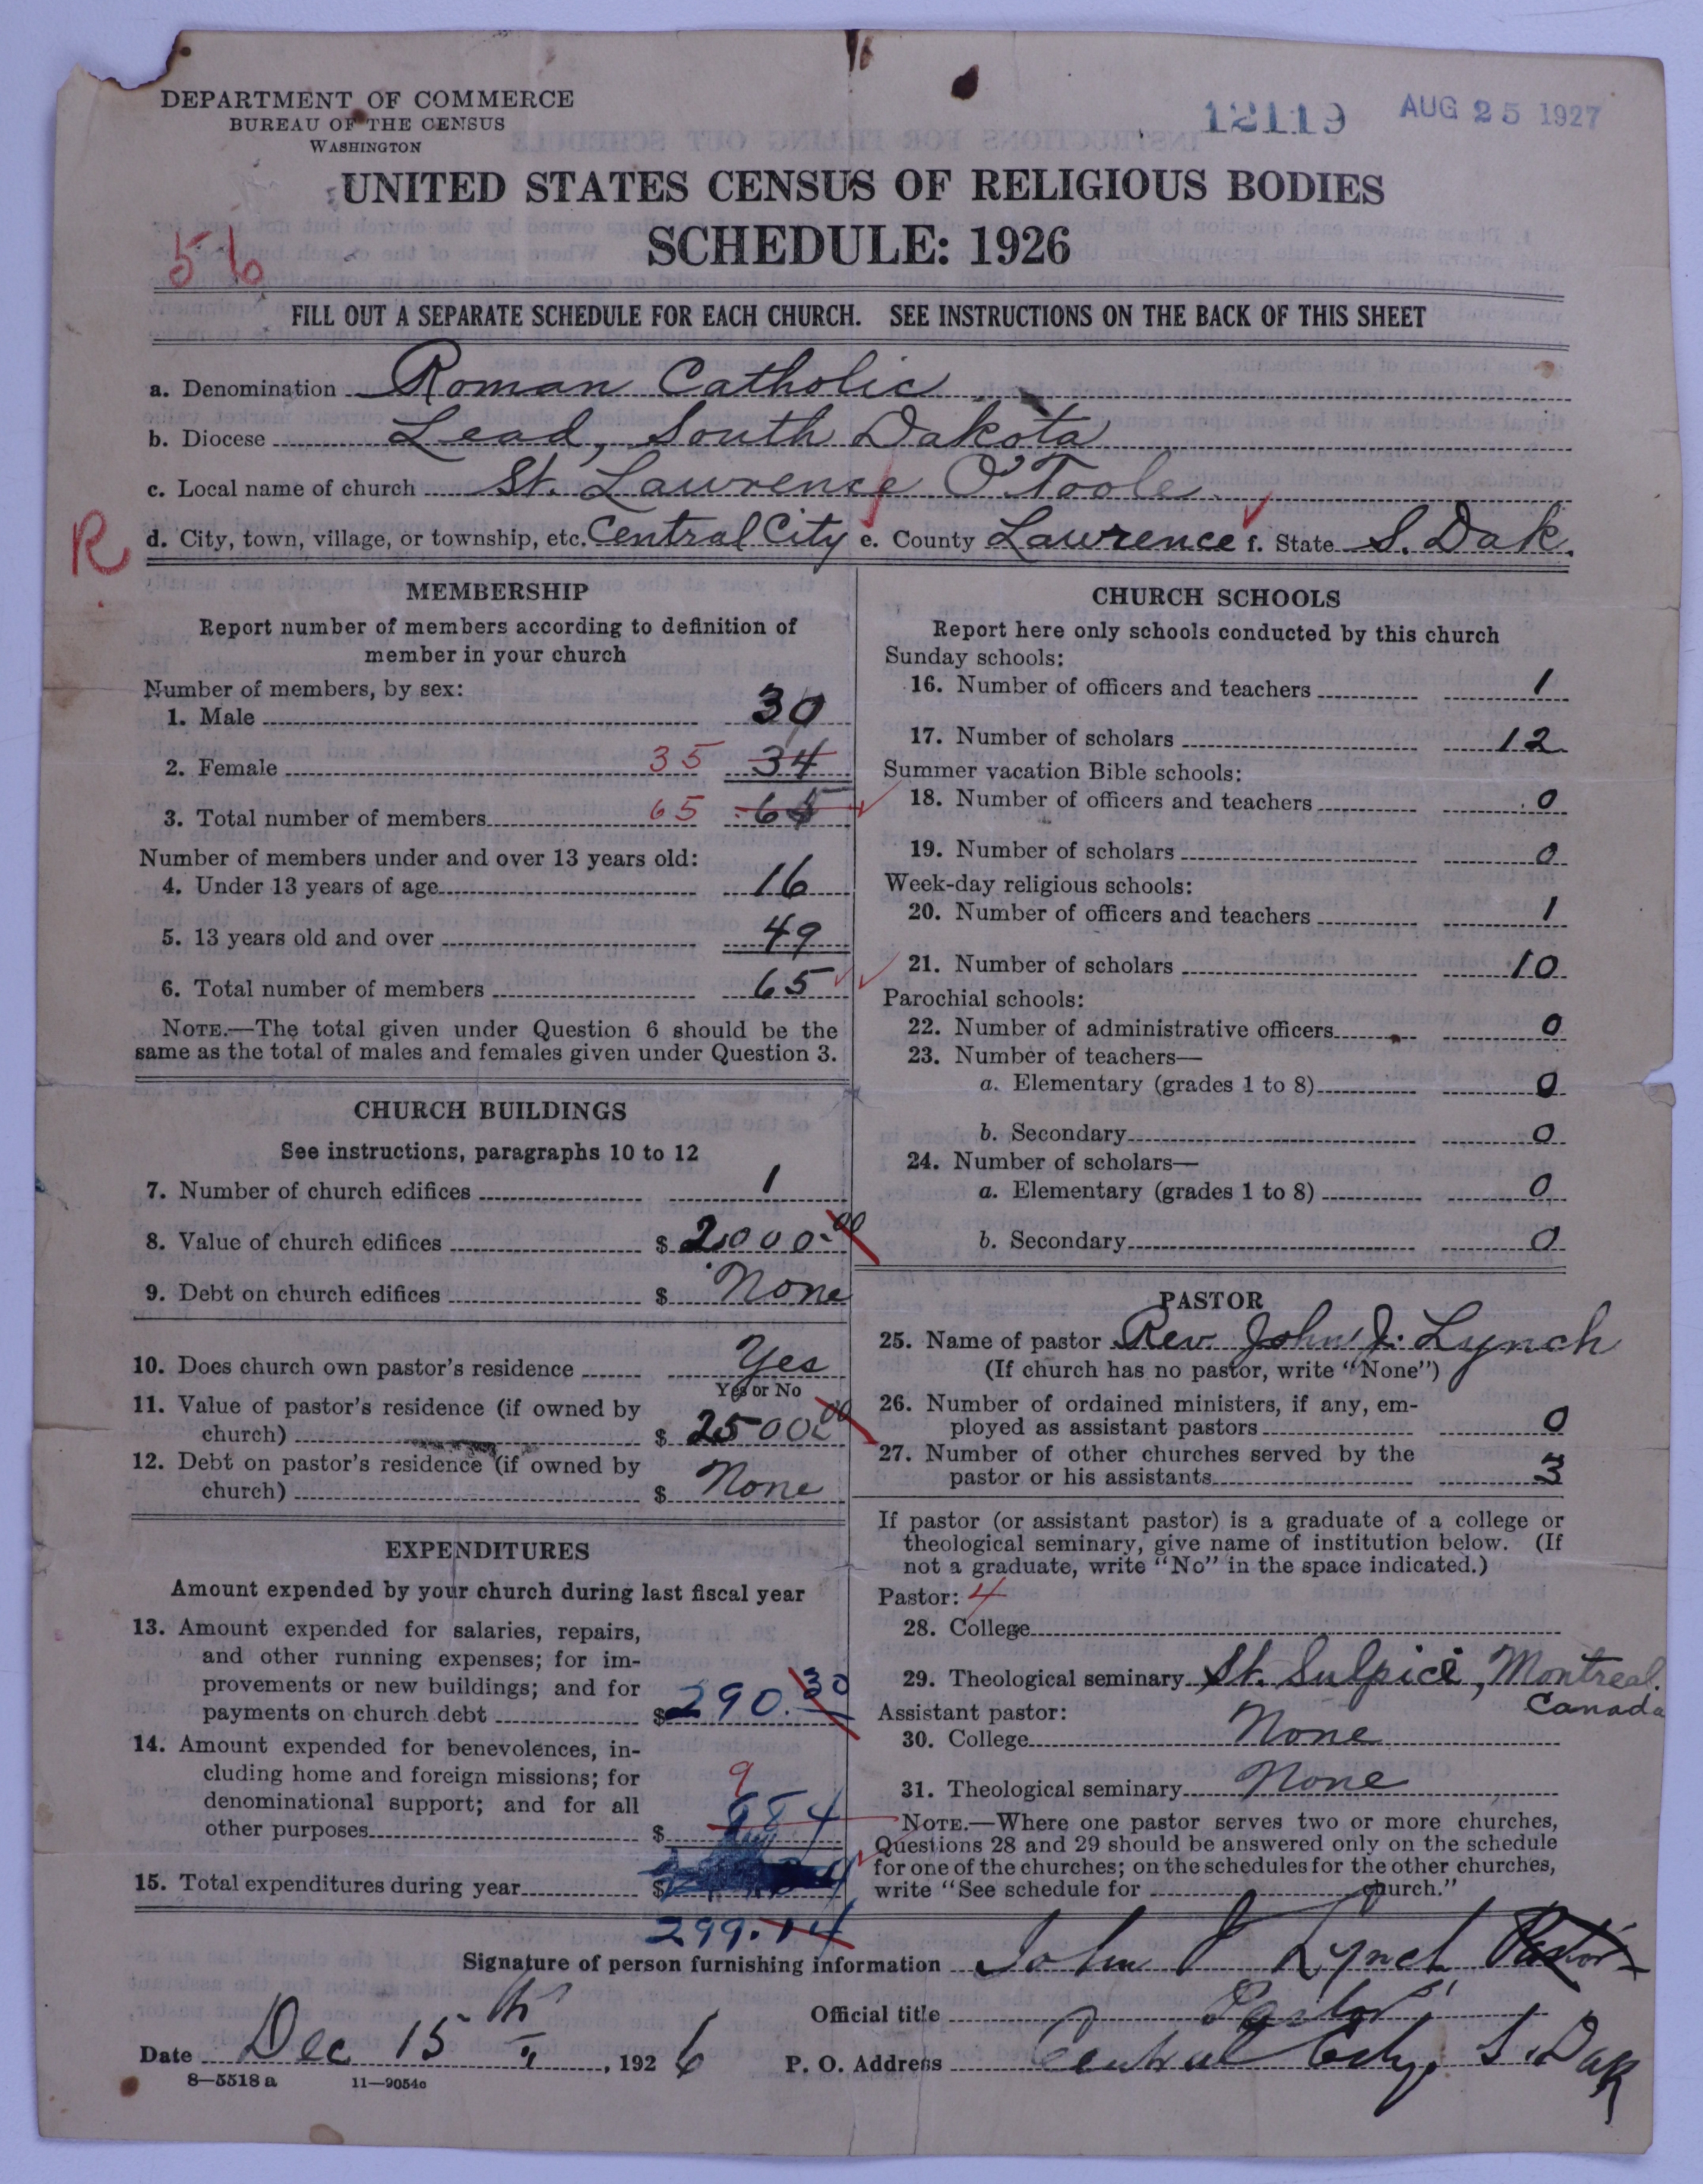 DEPARTMENT OF COMMERCE
BUREAU OF THE CENSUS
WASHINGTON
12119 AUG 25 1927
UNITED STATES CENSUS OF RELIGIOUS BODIES
SCHEDULE: 1926
56
FILL OUT A SEPARATE SCHEDULE FOR EACH CHURCH. SEE INSTRUCTIONS ON THE BACK OF THIS SHEET
a. Denomination Roman Catholic
b. Diocese Lead, South Dakota
c. Local name of church St. Lawrence O'Toole
R d. City, town, village, or township, etc. Central City e. County Lawrence f. State S. Dak.
MEMBERSHIP
Report number of members according to definition of
member in your church
Number of members, by sex:
1. Male 30
2. Female 35 34
3. Total number of members 65 65
Number of members under and over 13 years old:
4. Under 13 years of age 16
5. 13 years old and over 49
6. Total number of members 65
NOTE.—The total given under Question 6 should be the
same as the total of males and females given under Question 3.
CHURCH BUILDINGS
See instructions, paragraphs 10 to 12
7. Number of church edifices 1
8. Value of church edifices $ 2000.00
9. Debt on church edifices $ None
10. Does church own pastor's residence Yes
Yes or No
11. Value of pastor's residence (if owned by
church) $ 2500 00
12. Debt on pastor's residence (if owned by
church) $ None
EXPENDITURES
Amount expended by your church during last fiscal year
13. Amount expended for salaries, repairs,
and other running expenses; for im-
provements or new buildings; and for
payments on church debt $ 290.30
14. Amount expended for benevolences, in-
cluding home and foreign missions; for 9
denominational support; and for all
other purposes $ 884
15. Total expenditures during year $
299.14
CHURCH SCHOOLS
Report here only schools conducted by this church
Sunday schools:
16. Number of officers and teachers 1
17. Number of scholars 12
Summer vacation Bible schools:
18. Number of officers and teachers 0
19. Number of scholars 0
Week-day religious schools:
20. Number of officers and teachers 1
21. Number of scholars 10
Parochial schools:
22. Number of administrative officers 0
23. Number of teachers—
a. Elementary (grades 1 to 8) 0
b. Secondary 0
24. Number of scholars—
a. Elementary (grades 1 to 8) 0
b. Secondary 0
PASTOR
25. Name of pastor Rev. John J. Lynch
(If church has no pastor, write "None")
26. Number of ordained ministers, if any, em-
ployed as assistant pastors 0
27. Number of other churches served by the
pastor or his assistants 3
If pastor (or assistant pastor) is a graduate of a college or
theological seminary, give name of institution below. (If
not a graduate, write "No" in the space indicated.)
Pastor: 4
28. College
29. Theological seminary St. Sulpice, Montreal.
Canada
Assistant pastor:
30. College None
31. Theological seminary None
NOTE.—Where one pastor serves two or more churches,
Questions 28 and 29 should be answered only on the schedule
for one of the churches; on the schedules for the other churches,
write "See schedule for church."
Signature of person furnishing information John J Lynch Pastor
Official title Pastor
Date Dec 15th, 1926 P. O. Address Central City, S. Dak
8—5518a 11—9054c